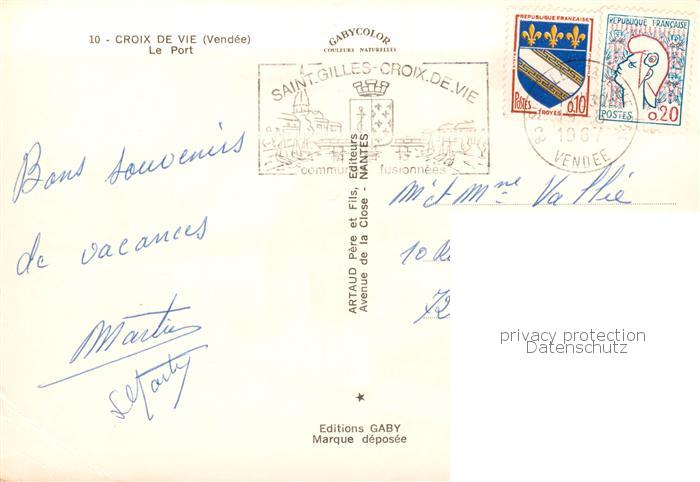 10 - CROIX DE VIE (Vendée)
Le Port
GABYCOLOR
COULEURS NATURELLES
SAINT.GILLES-CROIX.DE.VIE
communes fusionnées
REPUBLIQUE FRANÇAISE
POSTES 0,10
TROYES
REPUBLIQUE FRANÇAISE
POSTES 0,20
1967
VENDEE
Bons souvenirs
de vacances
Martin
ARTAUD Père et Fils, Editeurs
Avenue de la Close - NANTES
Mr et Mme Vallée
10 R
72
privacy protection
Datenschutz
Editions GABY
Marque déposée